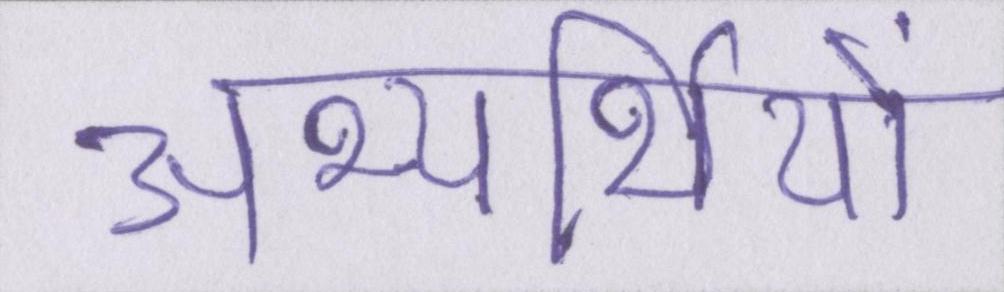 अभ्यर्थियों